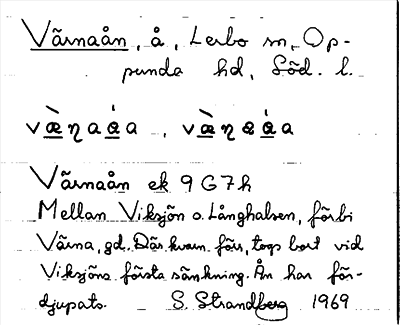 Värnaån, å, Lerbo sn, Op-
punda hd, Söd. l.
væ̀ɳaá̱a, væ̀ɳa á̱a
Värnaån ek 9 G 7 h
Mellan Viksjön o. Långhalsen, förbi
Värna, gd. Där kvarn förr, togs bort vid
Viksjöns första sänkning. Ån har för-
djupats. S. Strandberg 1969